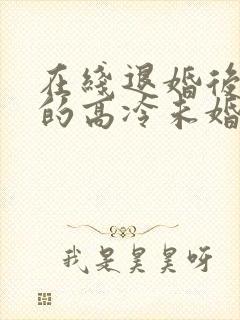 在綫退婚後
的高冷未婚
我是昊昊呀